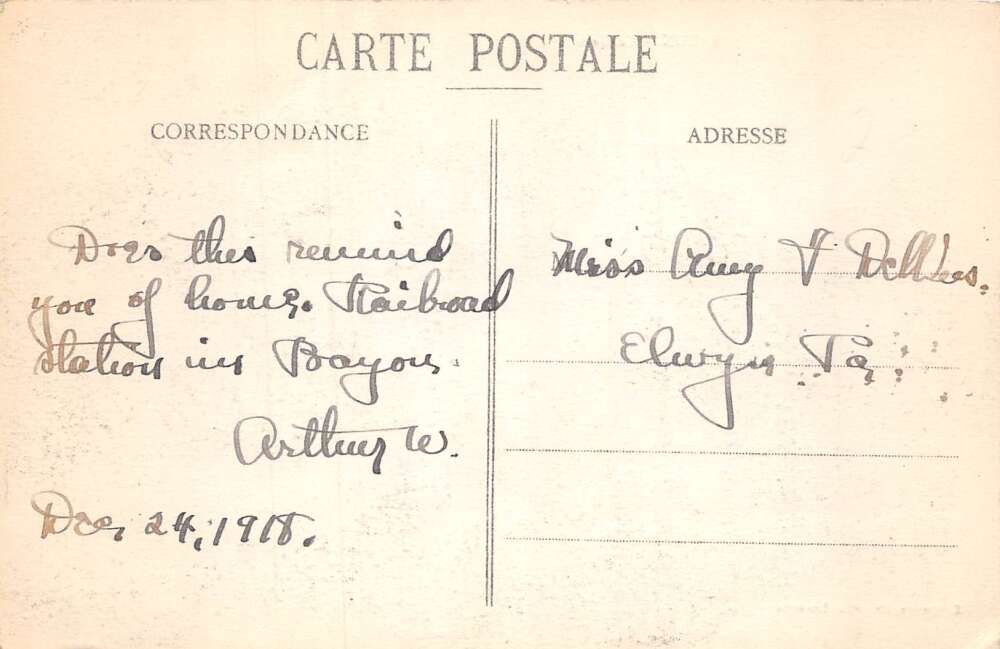 CARTE POSTALE
CORRESPONDANCE
ADRESSE
Does this remind
you of home. Railroad
station in Bayon.
Arthur W.
Dec, 24, 1918.
Miss Amy V
Elwyn Pa,